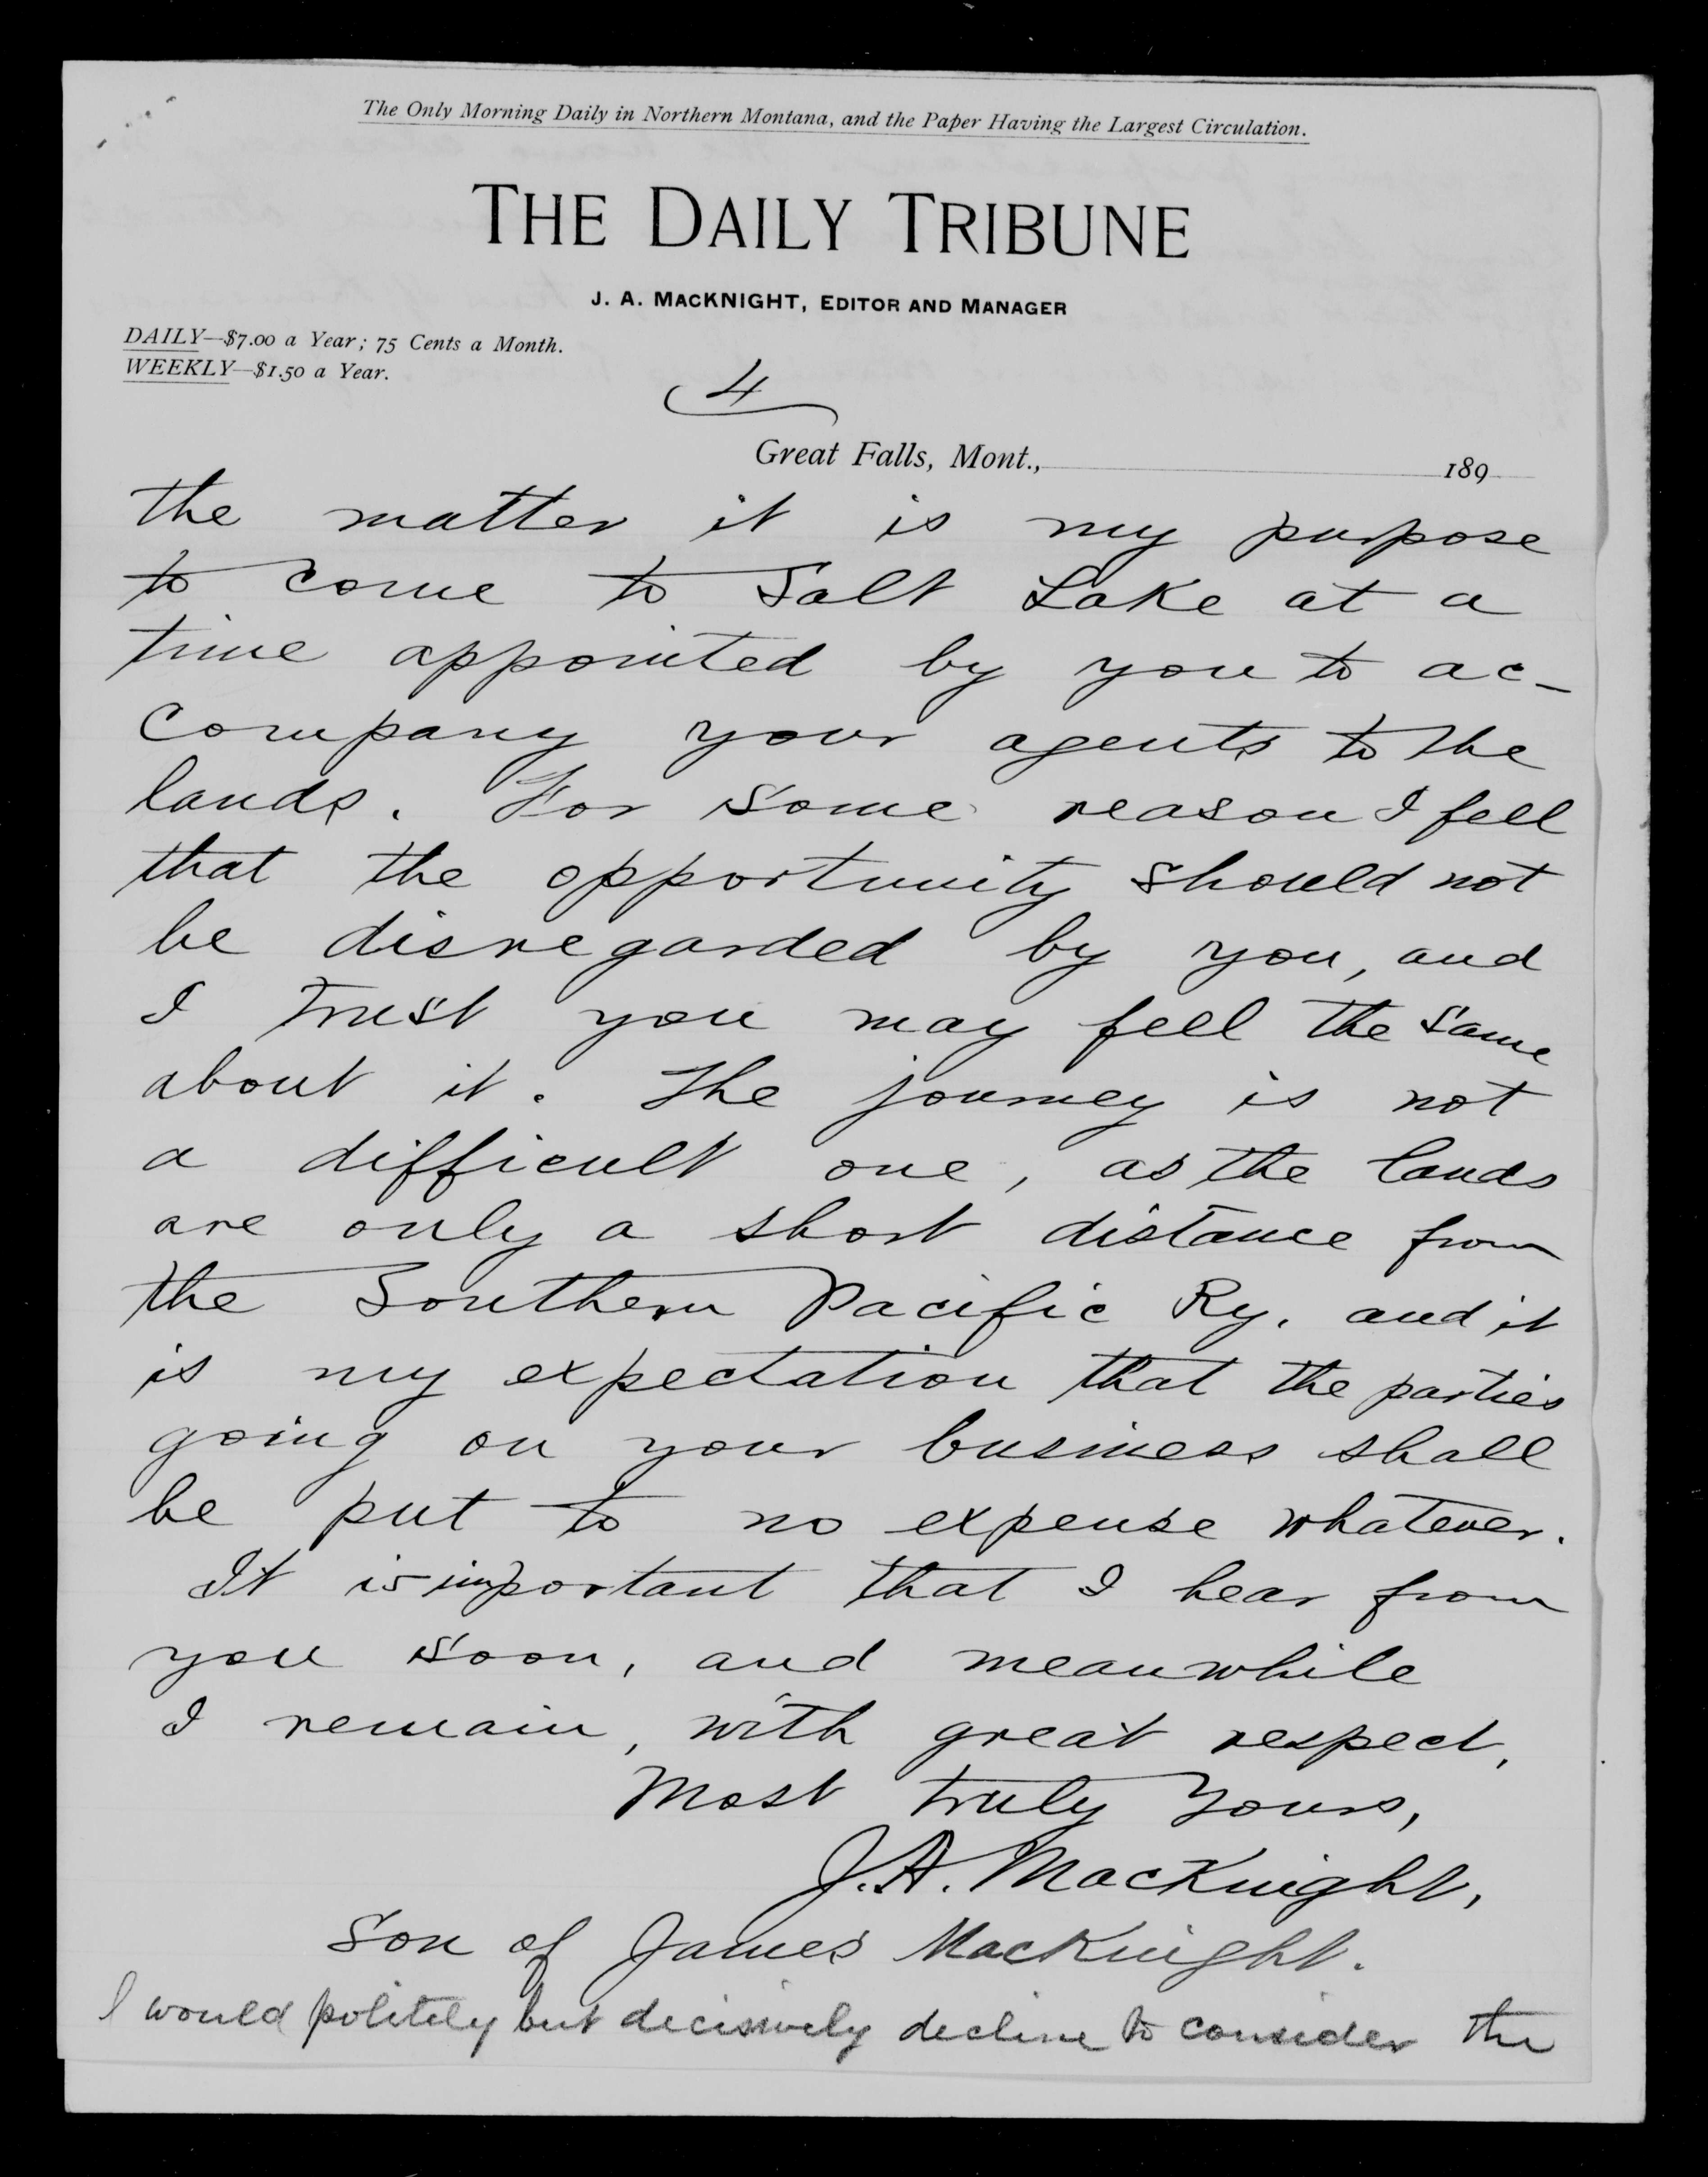 The Only Morning Daily in Northern Montana, and the Paper Having the Largest Circulation.
THE DAILY TRIBUNE
J. A. MACKNIGHT, EDITOR AND MANAGER
DAILY—$7.00 a Year; 75 Cents a Month.
WEEKLY—$1.50 a Year.
4
Great Falls, Mont., 189
the matter it is my purpose
to come to Salt Lake at a
time appointed by you to ac-
company your agents to the
lands. For some reason I feel
that the opportunity should not
be disregarded by you, and
I trust you may feel the same
about it. The journey is not
a difficult one, as the lands
are only a short distance from
the Southern Pacific Ry. and it
is my expectation that the parties
going on your business shall
be put to no expense whatever.
It is important that I hear from
you soon, and meanwhile
I remain, with great respect,
Most truly yours,
J.A. MacKnight,
Son of James MacKnight.
I would politely but decisively decline to consider the